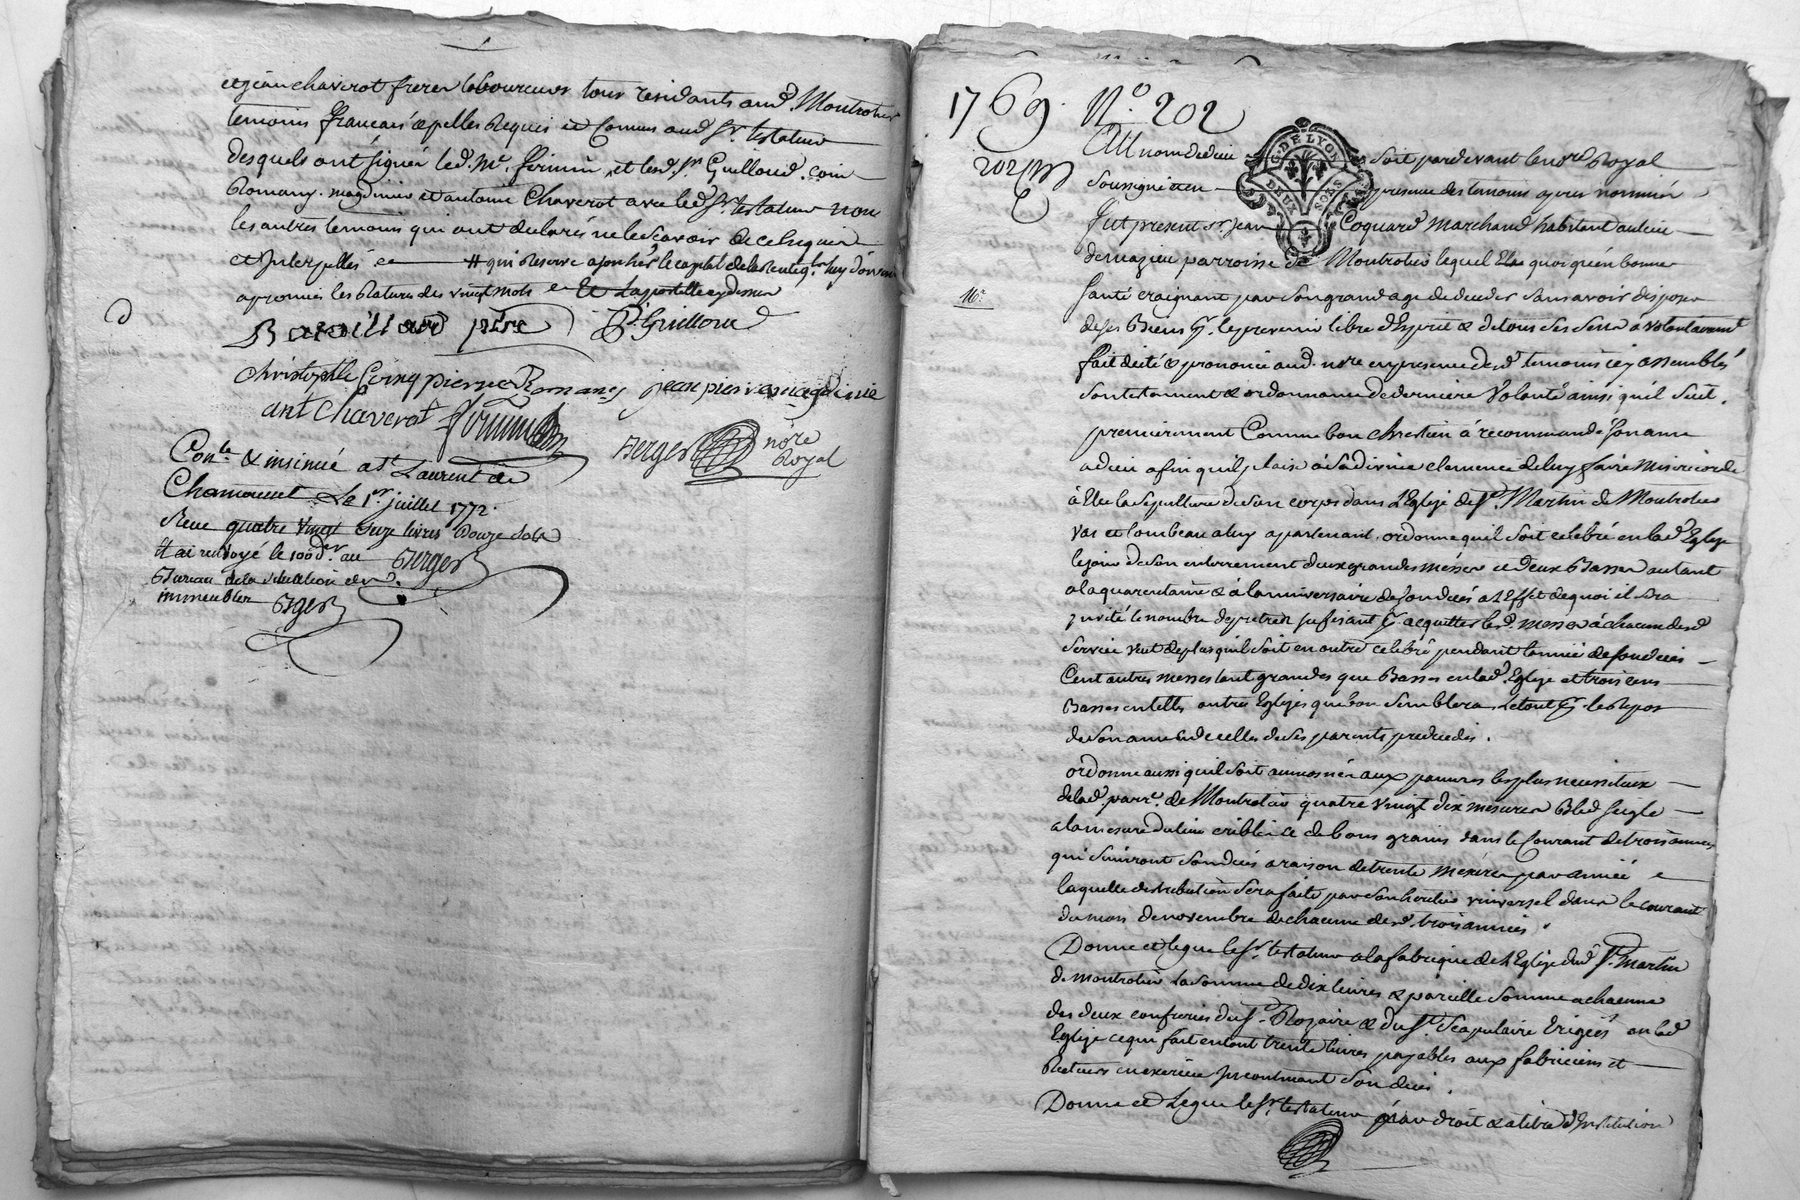 et jean chaverot freres laboureurs tous residants aud. Montrotier
temoins francais appelles Requis et Connus aud. Sr. testateur
desquels ont signé led. Me. firmin, et lesd. Sr. Guilloud, coin
Romany, magdinier et antoine Chaverot avec led. Sr. testateur non
les autres temoins qui ont declarés ne le scavoir de ce Enquis
et Interpellés
approuvé les Ratures des vingt mots
Baraillard père P. Guilloud
Christophle Coing pierre Romany jean pierre magdinie
ant Chaverot firmin
Berger nore Royal
Conlé & insinué a St. Laurent de
Chamousset Le 1er. juillet 1772.
Reçu quatre vingt onze livres Douze sols
et ai renvoyé le 100d er. au Berger
Bureau de la situation des
immeubles Bger
1769. N.o 202
202
Au nom de dieu soit pardevant le nore Royal
soussigné et en presence des temoins apres nommés
G. DE LYON
DEUX SOLS
fut present Sr. jean Coquard marchand habitant au lieu
de mazieu parroisse de Montrotier lequel quoiqu'en bonne
santé craignant par son grand age de deceder sans avoir disposé
de ses Biens pr. les prevenir libre d'Esprit & de tous ses sens a volontairement
fait dicté & prononcé aud. nore en presence desd. temoins icy assemblés
son testament & ordonnance de derniere Volonté ainsi qu'il suit.
premierement Comme bon chretien à recommandé son ame
a dieu afin qu'il plaise à sa divine clemence de luy faire misericorde
à Elu la sepulture de son corps dans L'Eglise de St. Martin de Montrotier
vas et tombeau a luy apartenant, ordonne qu'il soit celebré en lad. Eglise
le jour de son enterrement deux grandes messes et deux Basses autant
a la quarantaine & à l'anniversaire de son decés a l'Effet de quoi il sera
invité le nombre de pretres sufisant pr. acquitter lesd. messes à chacun desd.
services veut de plus qu'il soit en outre celebré pendant l'année de son decés
Cent autres messes tant grandes que Basses en lad. Eglise et trois cens
Basses en telles autres Eglises que bon semblera, Le tout pr. le Repos
de son ame & de celles de ses parents predecedés.
ordonne aussi qu'il soit aumosné aux pauvres les plus necessiteux
de lad. parr. de Montrotier quatre vingt dix mesures Bled seigle
a la mesure du lieu criblé & de bons grains dans le Courant de trois années
qui suivront son decés a raison de trente mesures par année
laquelle distribution sera faite par son heritier universel dans le courant
du mois de novembre de chacune desd. trois années.
Donne et legue led. Sr. testateur a la fabrique de L'Eglise dud. St. Martin
de montrotier La somme de dix livres & pareille somme a chacune
des deux confreries du St. Rozaire & du St. Scapulaire Erigées en lad.
Eglise ce qui fait en tout trente livres payables aux fabriciens et
Recteurs en exercice incontinant son decés.
Donne et Legue led. Sr. testateur par droit & a titre d'Institution